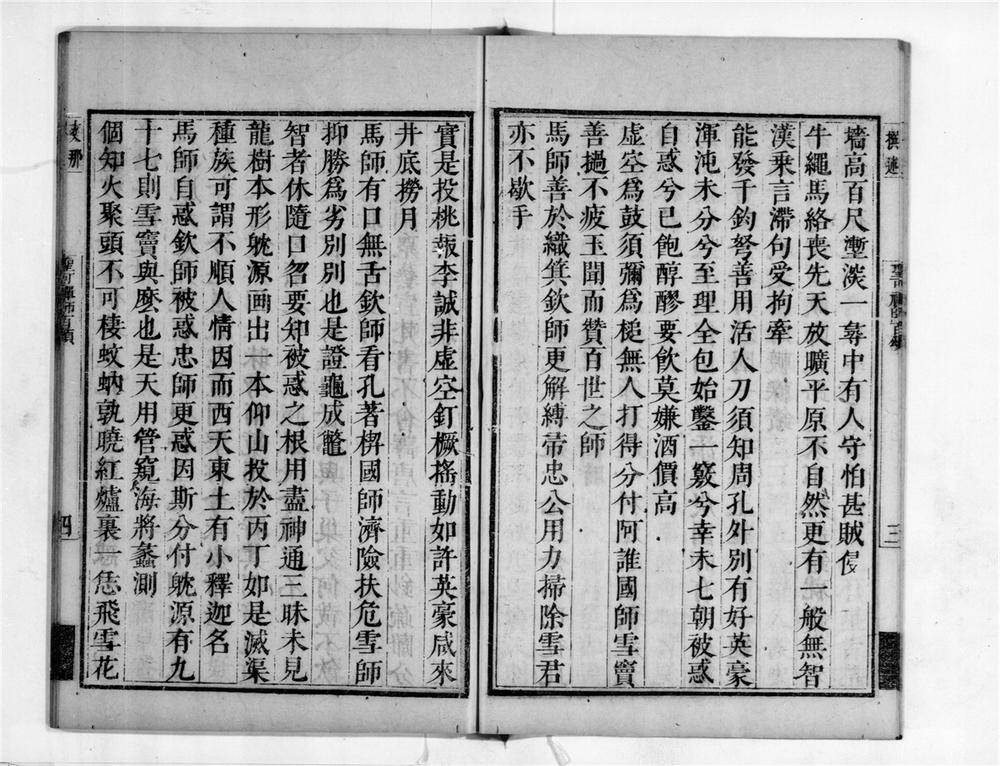 墻高百尺壍淡一尋中有人守怕甚賊侵
牛繩馬絡喪先天放曠平原不自然更有一般無智
漢乗言滯句受拘牽
能發千鈞弩善用活人刀須知周孔外別有好英豪
渾沌未分兮至理全包始鑿一竅兮幸未七朝被惑
自惑兮已飽醇醪要飲莫嫌酒價高
虛空爲鼓須彌爲槌無人打得分付阿誰國師雪竇
善撾不疲玉聞而贊百世之師
馬師善於織箕欽師更解縛帚忠公用力掃除雪君
亦不歇手
實是投桃報李誠非虛空釘橛搖動如許英豪咸來
井底撈月
馬師有口無舌欽師看孔著楔國師濟險扶危雪師
抑勝爲劣別別也是證龜成鼈
智者休隨口名要知被惑之根用盡神通三昧未見
龍樹本形躭源画出一本仰山投於丙丁如是滅渠
種族可謂不順人情因而西天東土有小釋迦名
馬師自惑欽師被惑忠師更惑因斯分付躭源有九
十七則雪竇與麽也是天用管窺海將蠡測
個知火聚頭不可棲蚊蚋孰曉紅爐裏一恁飛雪花
三
四